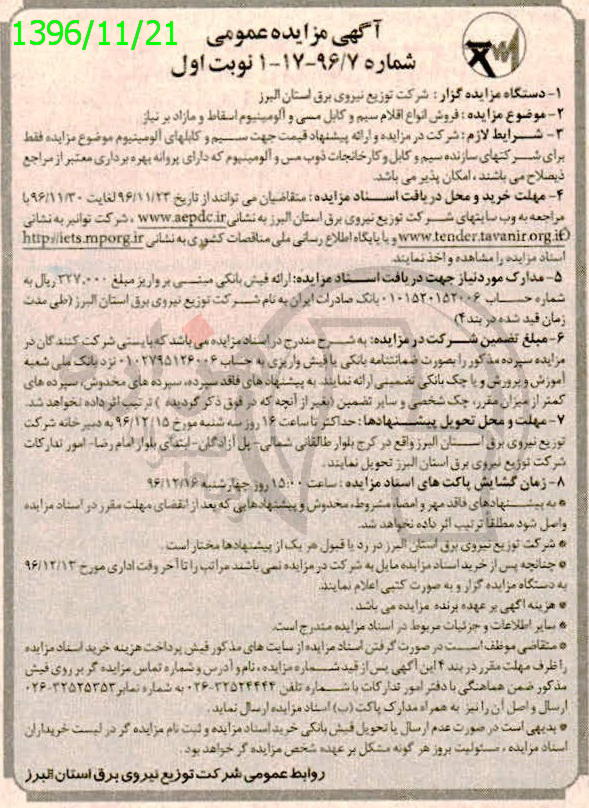 1396/11/21
آگهی مزایده عمومی
شماره ۹۶/۷-۱۷-۱ نوبت اول
۱- دستگاه مزایده گزار : شرکت توزیع نیروی برق استان البرز
۲- موضوع مزایده : فروش انواع اقلام سیم و کابل مسی و آلومینیوم اسقاط و مازاد بر نیاز
۳- شرایط لازم : شرکت در مزایده و ارائه پیشنهاد قیمت جهت سیم و کابلهای آلومینیوم موضوع مزایده فقط
برای شرکتهای سازنده سیم و کابل و کارخانجات ذوب مس و آلومینیوم که دارای پروانه بهره برداری معتبر از مراجع
ذیصلاح می باشند ، امکان پذیر می باشد.
۴- مهلت خرید و محل دریافت اسناد مزایده : متقاضیان می توانند از تاریخ ۹۶/۱۱/۲۳ لغایت ۹۶/۱۱/۳۰ با
مراجعه به وب سایتهای شرکت توزیع نیروی برق استان البرز به نشانی www.aepdc.ir ، شرکت توانیر به نشانی
www.tender.tavanir.org.ir و یا پایگاه اطلاع رسانی ملی مناقصات کشوری به نشانی http://iets.mporg.ir
اسناد مزایده را مشاهده و اخذ نمایند.
۵- مدارک مورد نیاز جهت دریافت اسناد مزایده: ارائه فیش بانکی مبنی بر واریز مبلغ ۳۲۷.۰۰۰ ریال به
شماره حساب ۰۱۰۱۵۲۰۱۵۲۰۰۶ بانک صادرات ایران به نام شرکت توزیع نیروی برق استان البرز (طی مدت
زمان قید شده در بند ۴)
۶- مبلغ تضمین شرکت در مزایده: به شرح مندرج در اسناد مزایده می باشد که بایستی شرکت کنندگان در
مزایده سپرده مذکور را بصورت ضمانتنامه بانکی یا فیش واریزی به حساب ۰۱۰۲۷۹۵۱۲۶۰۰۶ نزد بانک ملی شعبه
آموزش و پرورش و یا چک بانکی تضمینی ارائه نمایند. به پیشنهاد های فاقد سپرده، سپرده های مخدوش، سپرده های
کمتر از میزان مقرر، چک شخصی و سایر تضمین (بغیر از آنچه که در فوق ذکر گردیده ) ترتیب اثر داده نخواهد شد.
۷- مهلت و محل تحویل پیشنهادها : حداکثر تا ساعت ۱۶ روز سه شنبه مورخ ۹۶/۱۲/۱۵ به دبیرخانه شرکت
توزیع نیروی برق استان البرز واقع در کرج بلوار طالقانی شمالی- پل آزادگان- ابتدای بلوار امام رضا- امور تدارکات
شرکت توزیع نیروی برق استان البرز تحویل نمایند .
۸- زمان گشایش پاکت های اسناد مزایده : ساعت ۱۵:۰۰ روز چهارشنبه ۹۶/۱۲/۱۶
* به پیشنهادهای فاقد مهر و امضاء مشروط، مخدوش و پیشنهادهایی که بعد از انقضای مهلت مقرر در اسناد مزایده
واصل شود مطلقا ترتیب اثر داده نخواهد شد.
* شرکت توزیع نیروی برق استان البرز در رد یا قبول هر یک از پیشنهادها مختار است .
* چنانچه پس از خرید اسناد مزایده مایل به شرکت در مزایده نمی باشند مراتب را تا آخر وقت اداری مورخ ۹۶/۱۲/۱۳
به دستگاه مزایده گزار و به صورت کتبی اعلام نمایند.
* هزینه آگهی بر عهده برنده مزایده می باشد .
* سایر اطلاعات و جزئیات مربوط در اسناد مزایده مندرج است.
* متقاضی موظف است در صورت گرفتن اسناد مزایده از سایت های مذکور فیش پرداخت هزینه خرید اسناد مزایده
را ظرف مهلت مقرر در بند ۴ این آگهی پس از قید شماره مزایده ، نام و آدرس و شماره تماس مزایده گر بر روی فیش
مذکور ضمن هماهنگی با دفتر امور تدارکات با شماره تلفن ۳۲۵۲۴۴۴۴-۰۲۶ به شماره نمابر ۳۲۵۲۵۳۵۳-۰۲۶
ارسال و اصل آن را نیز به همراه مدارک پاکت (ب) اسناد مزایده ارسال نماید .
* بدیهی است در صورت عدم ارسال یا تحویل فیش بانکی خرید اسناد مزایده و ثبت نام مزایده گر در لیست خریداران
اسناد مزایده ، مسئولیت بروز هر گونه مشکل بر عهده شخص مزایده گر خواهد بود .
روابط عمومی شرکت توزیع نیروی برق استان البرز